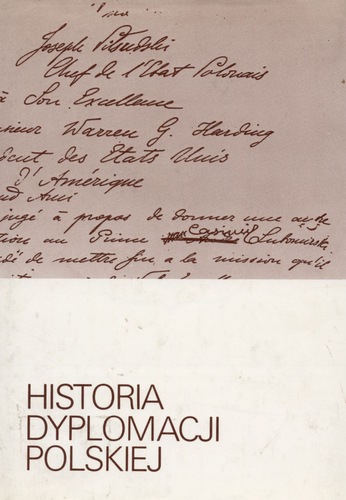 Joseph Pilsudski
Chef de l'Etat Polonais
à Son Excellence
sieur Warren G. Harding
dent des Etats Unis
d'Amérique
nd Ami
jugé à propos de donner une autre
tion au Prince Casimir Lubomirski
dé de mettre fin a la mission qu'il
HISTORIA
DYPLOMACJI
POLSKIEJ